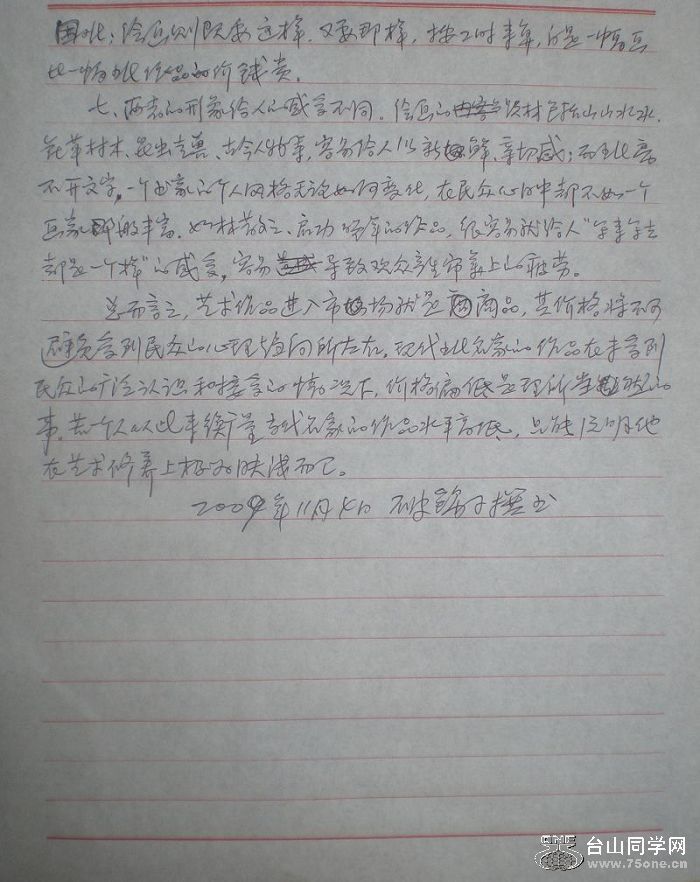 因此：绘画则既要这样，又要那样，按工时来算，自是一幅画
比一幅书法作品的价钱贵。
七、两者的形象给人的感受不同。绘画的题材包括山山水水、
花草树木、昆虫走兽、古今人物等，容易给人以新鲜、亲切感；而书法离
不开文字，一个书家的个人风格无论如何变化，在民众心目中都不如一个
画家那般丰富。如林散之、启功晚年的作品，很容易就给人"写来写去
都是一个样"的感受，容易导致观众产生审美上的疲劳。
总而言之，艺术作品进入市场就是商品，其价格将不可
避免受到民众的心理趋向所左右。现代书法名家的作品在未受到
民众的广泛认识和接受的情况下，价格偏低是理所当然的
事。若一个人以此来衡量当代名家的作品水平高低，只能说明他
在艺术修养上极为肤浅而已。
2009年11月4日 撰书
台山同学网
www.75one.cn